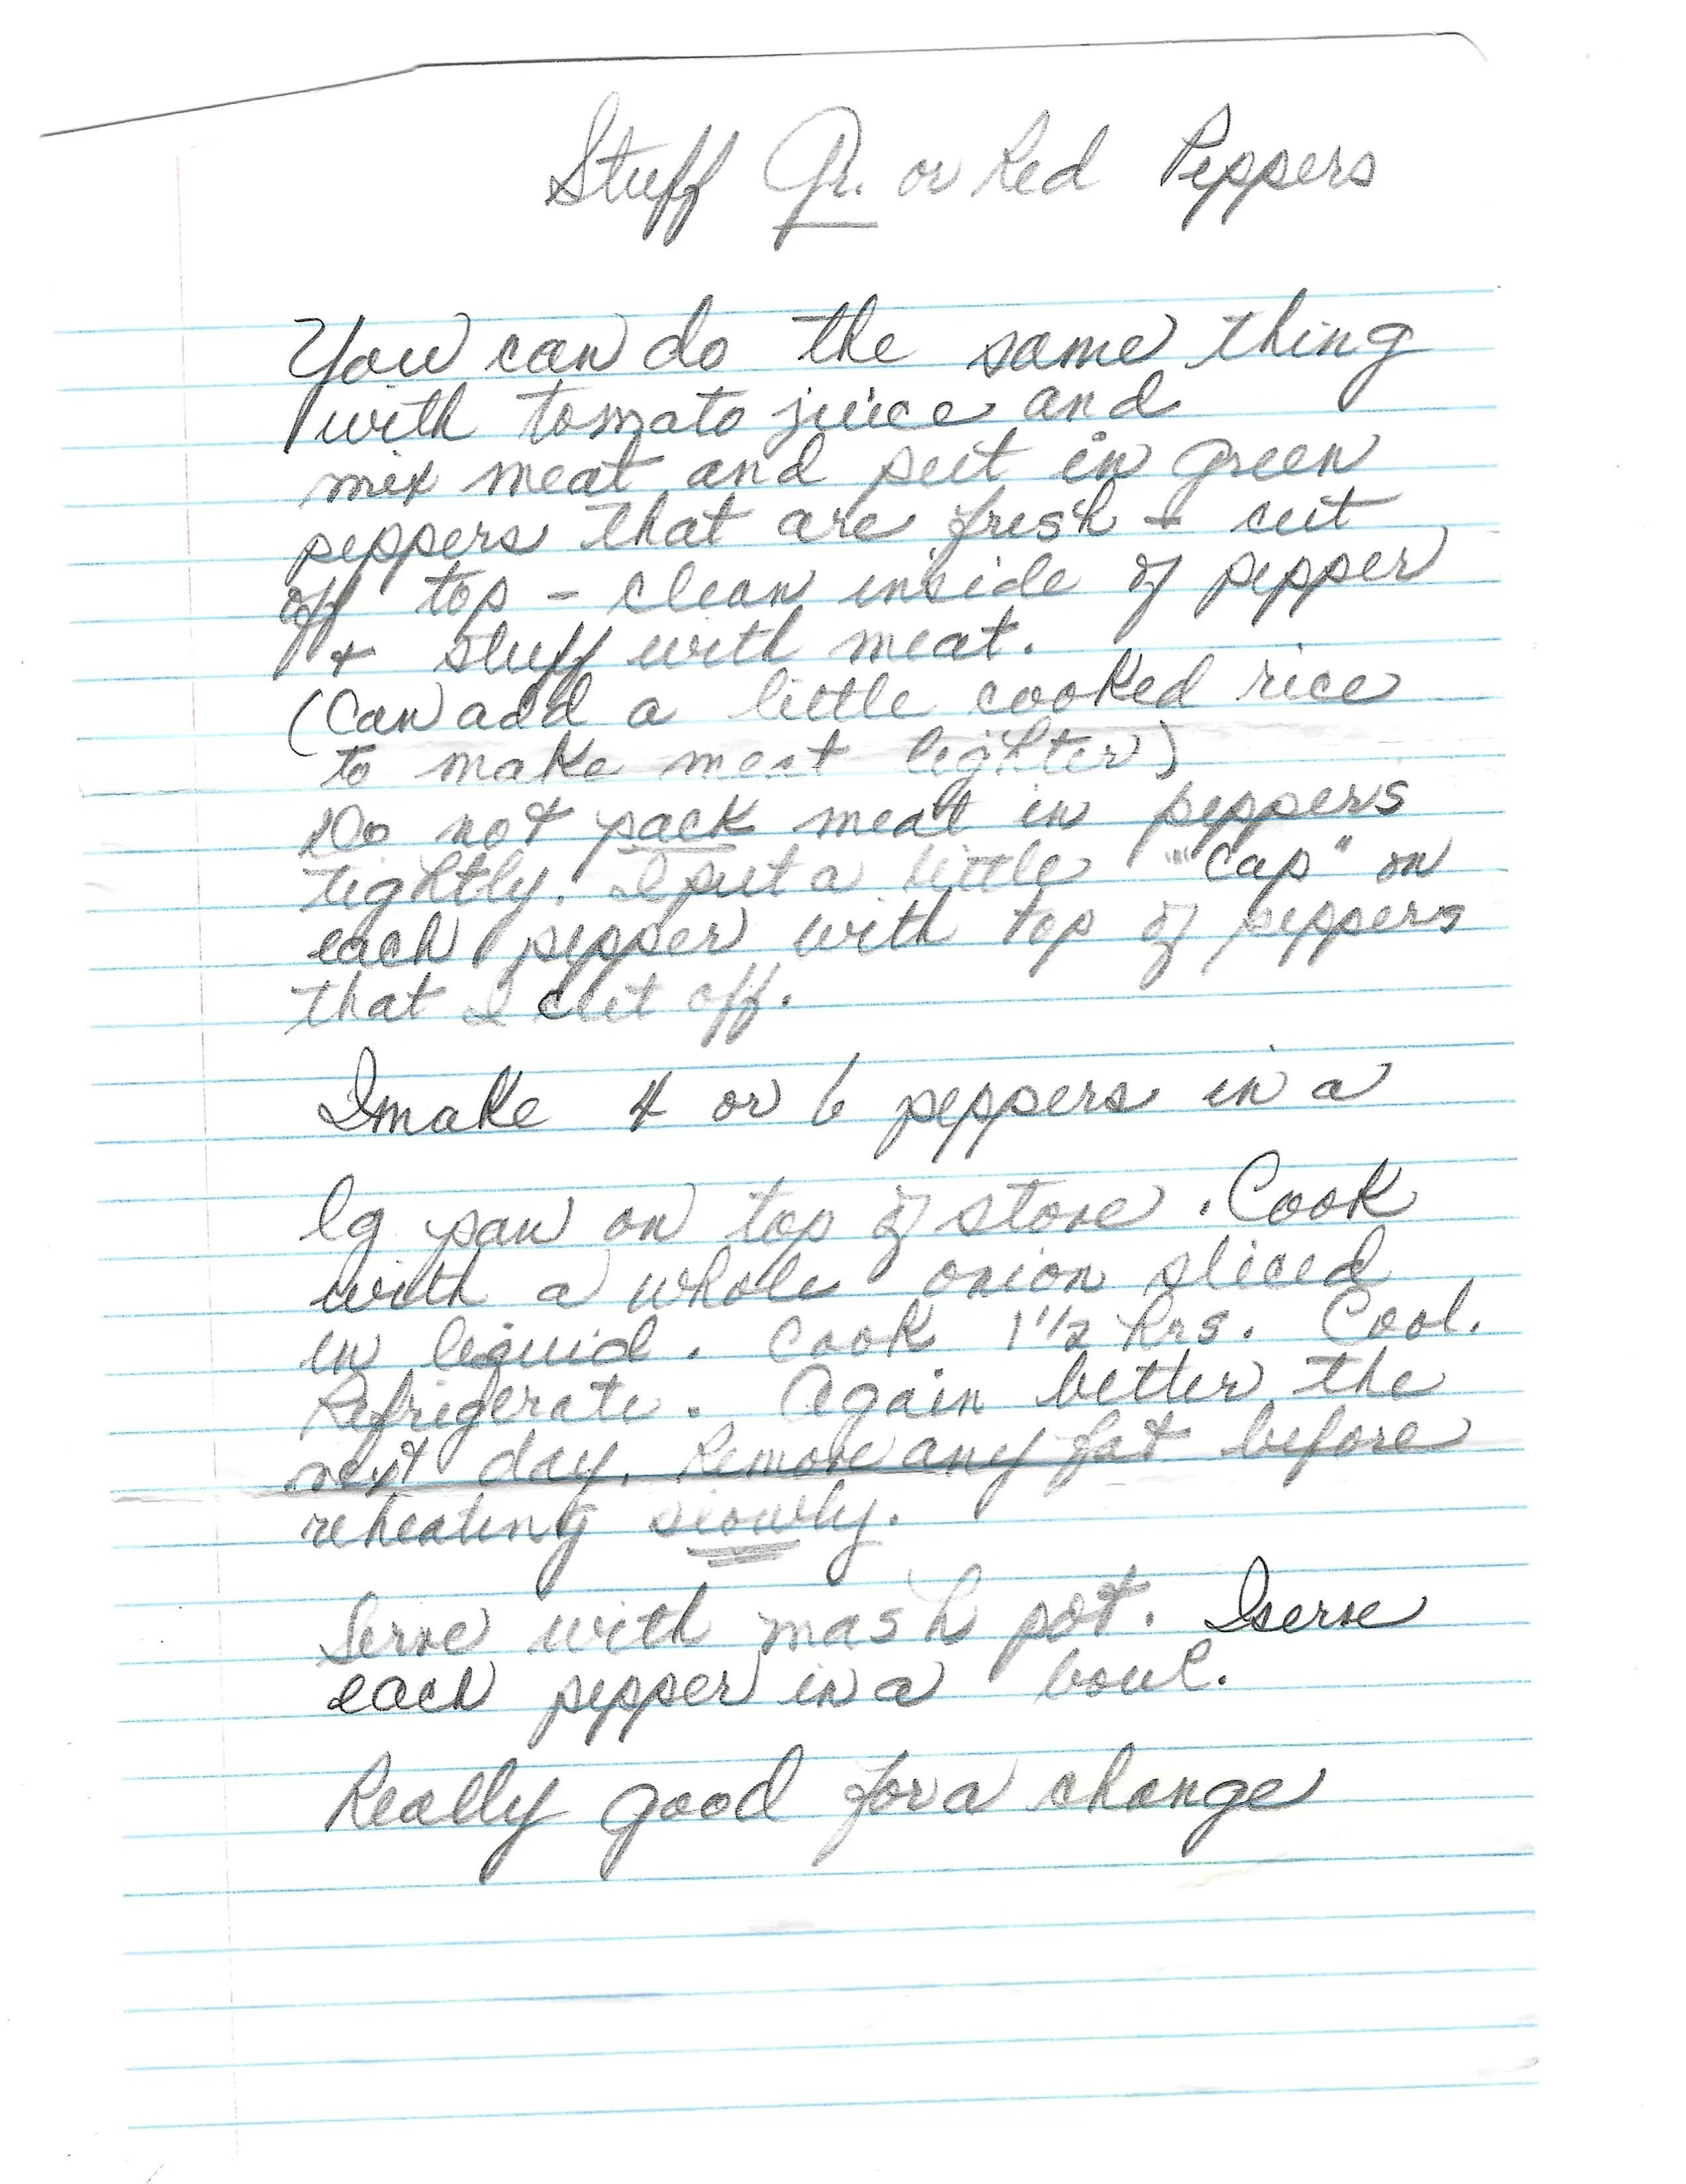 Stuff Gr. or Red Peppers
You can do the same thing
with tomato juice and
mix meat and put in green
peppers that are fresh + cut
off top - clean inside of pepper
+ stuff with meat.
(Can add a little cooked rice
to make meat lighter)
Do not pack meat in peppers
tightly. I put a little "cap" on
each pepper with top of peppers
that I cut off.
I make 4 or 6 peppers in a
lg pan on top of stove. Cook
with a whole onion sliced
in liquid. Cook 1 1/2 hrs. Cool.
Refrigerate. Again better the
next day. Remove any fat before
reheating slowly.
Serve with mash pot. I serve
each pepper in a bowl.
Really good for a change